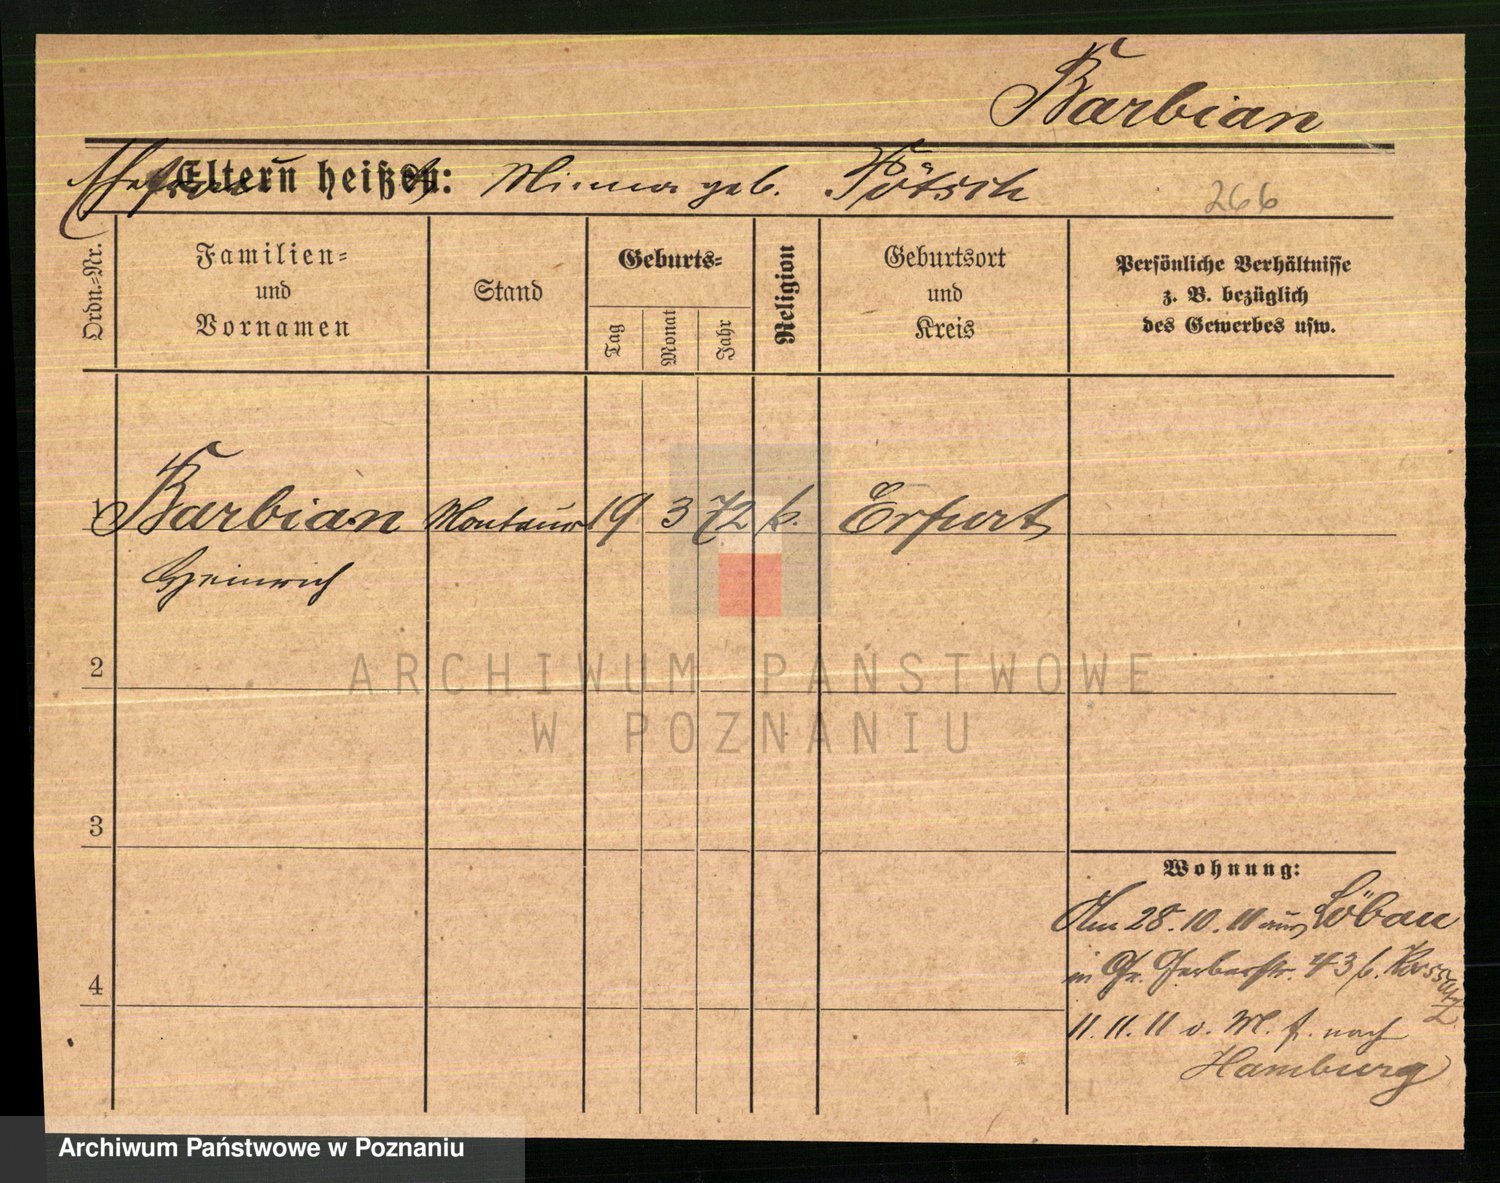 Barbian
Ehefrau Eltern heißen: Minna geb. Pötsch
266
Ordn.-Nr.
Familien-
und
Vornamen
Stand
Geburts-
Tag
Monat
Jahr
Religion
Geburtsort
und
Kreis
Persönliche Verhältnisse
z. B. bezüglich
des Gewerbes usw.
1 Barbian Monteur 19 3 72 k. Erfurt
Heinrich
2
3
4
Wohnung:
Am 28.10.11 aus Löbau
in Gr. Gerberstr. 43 b.
11.11.11 v. M. f. nach
Hamburg
ARCHIWUM PAŃSTWOWE
W POZNANIU
Archiwum Państwowe w Poznaniu